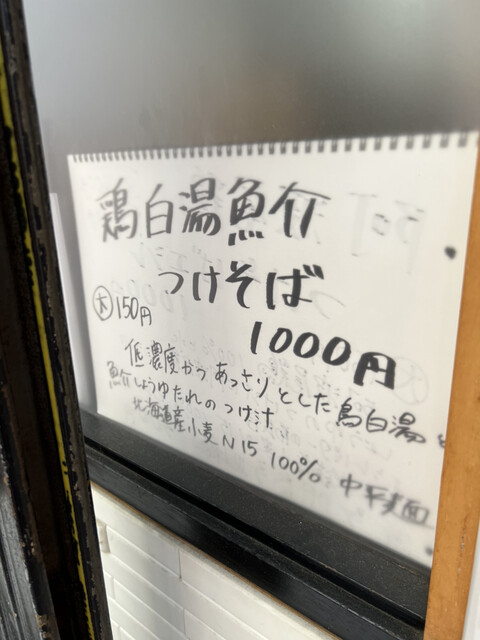 鶏白湯魚介
つけそば
大 150円
1000円
低濃度かつあっさりとした鳥白湯と
魚介しょうゆたれのつけ汁
北海道産小麦N15 100% 中平麺